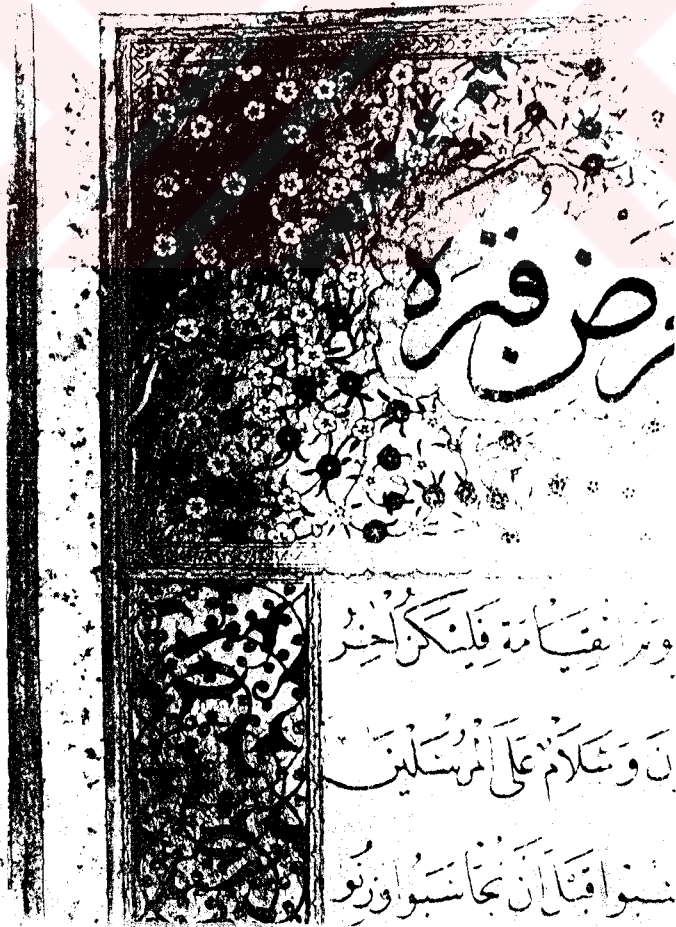 رض قبره
وم القيامة فَلْيَكُنْ اٰخِرُ
نَ وَسَلَامٌ عَلَى الْمُرْسَلِينَ
سبوا قَبْلَ اَنْ تُحَاسَبُوا وَزِنُو